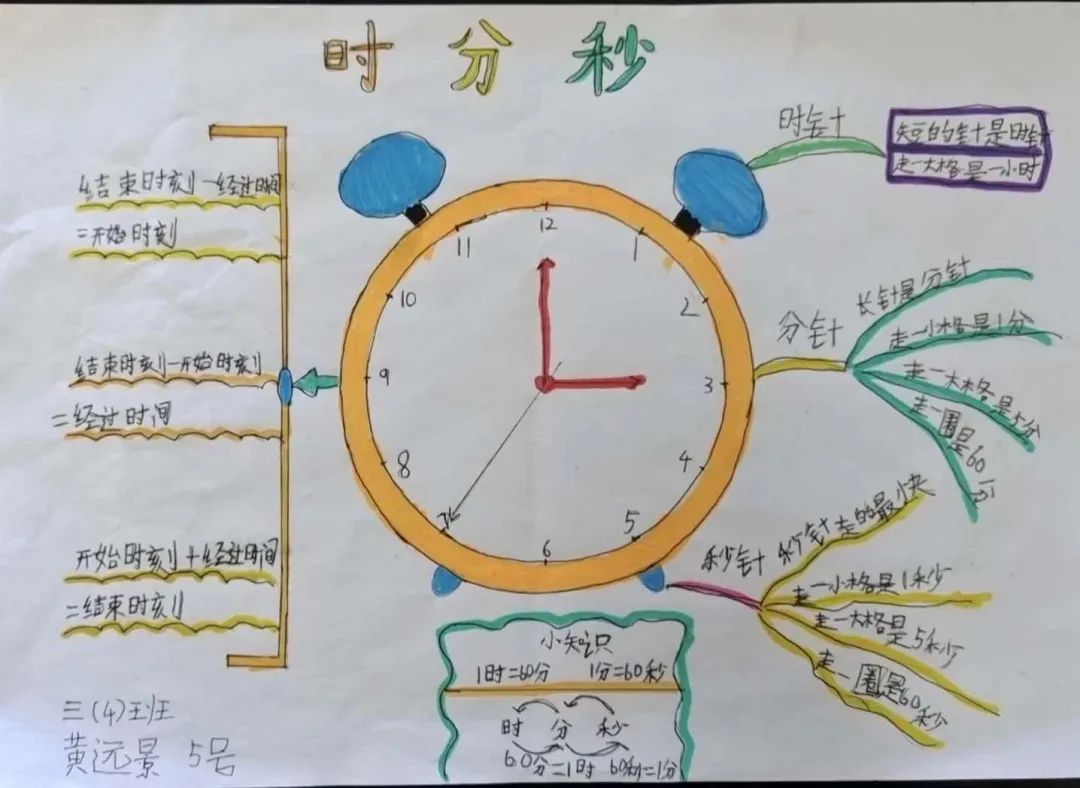 时 分 秒
结束时刻-经过时间
=开始时刻
结束时刻-开始时刻
=经过时间
开始时刻+经过时间
=结束时刻
三(4)班
黄远景 5号
12
1
2
3
4
5
6
7
8
9
10
11
时针
短的针是时针
走一大格是一小时
分针
长针是分针
走一小格是1分
走一大格是5分
走一圈是60分
秒针
秒针走的最快
走一小格是1秒
走一大格是5秒
走一圈是60秒
小知识
1时=60分 1分=60秒
时 分 秒
60分=1时 60秒=1分